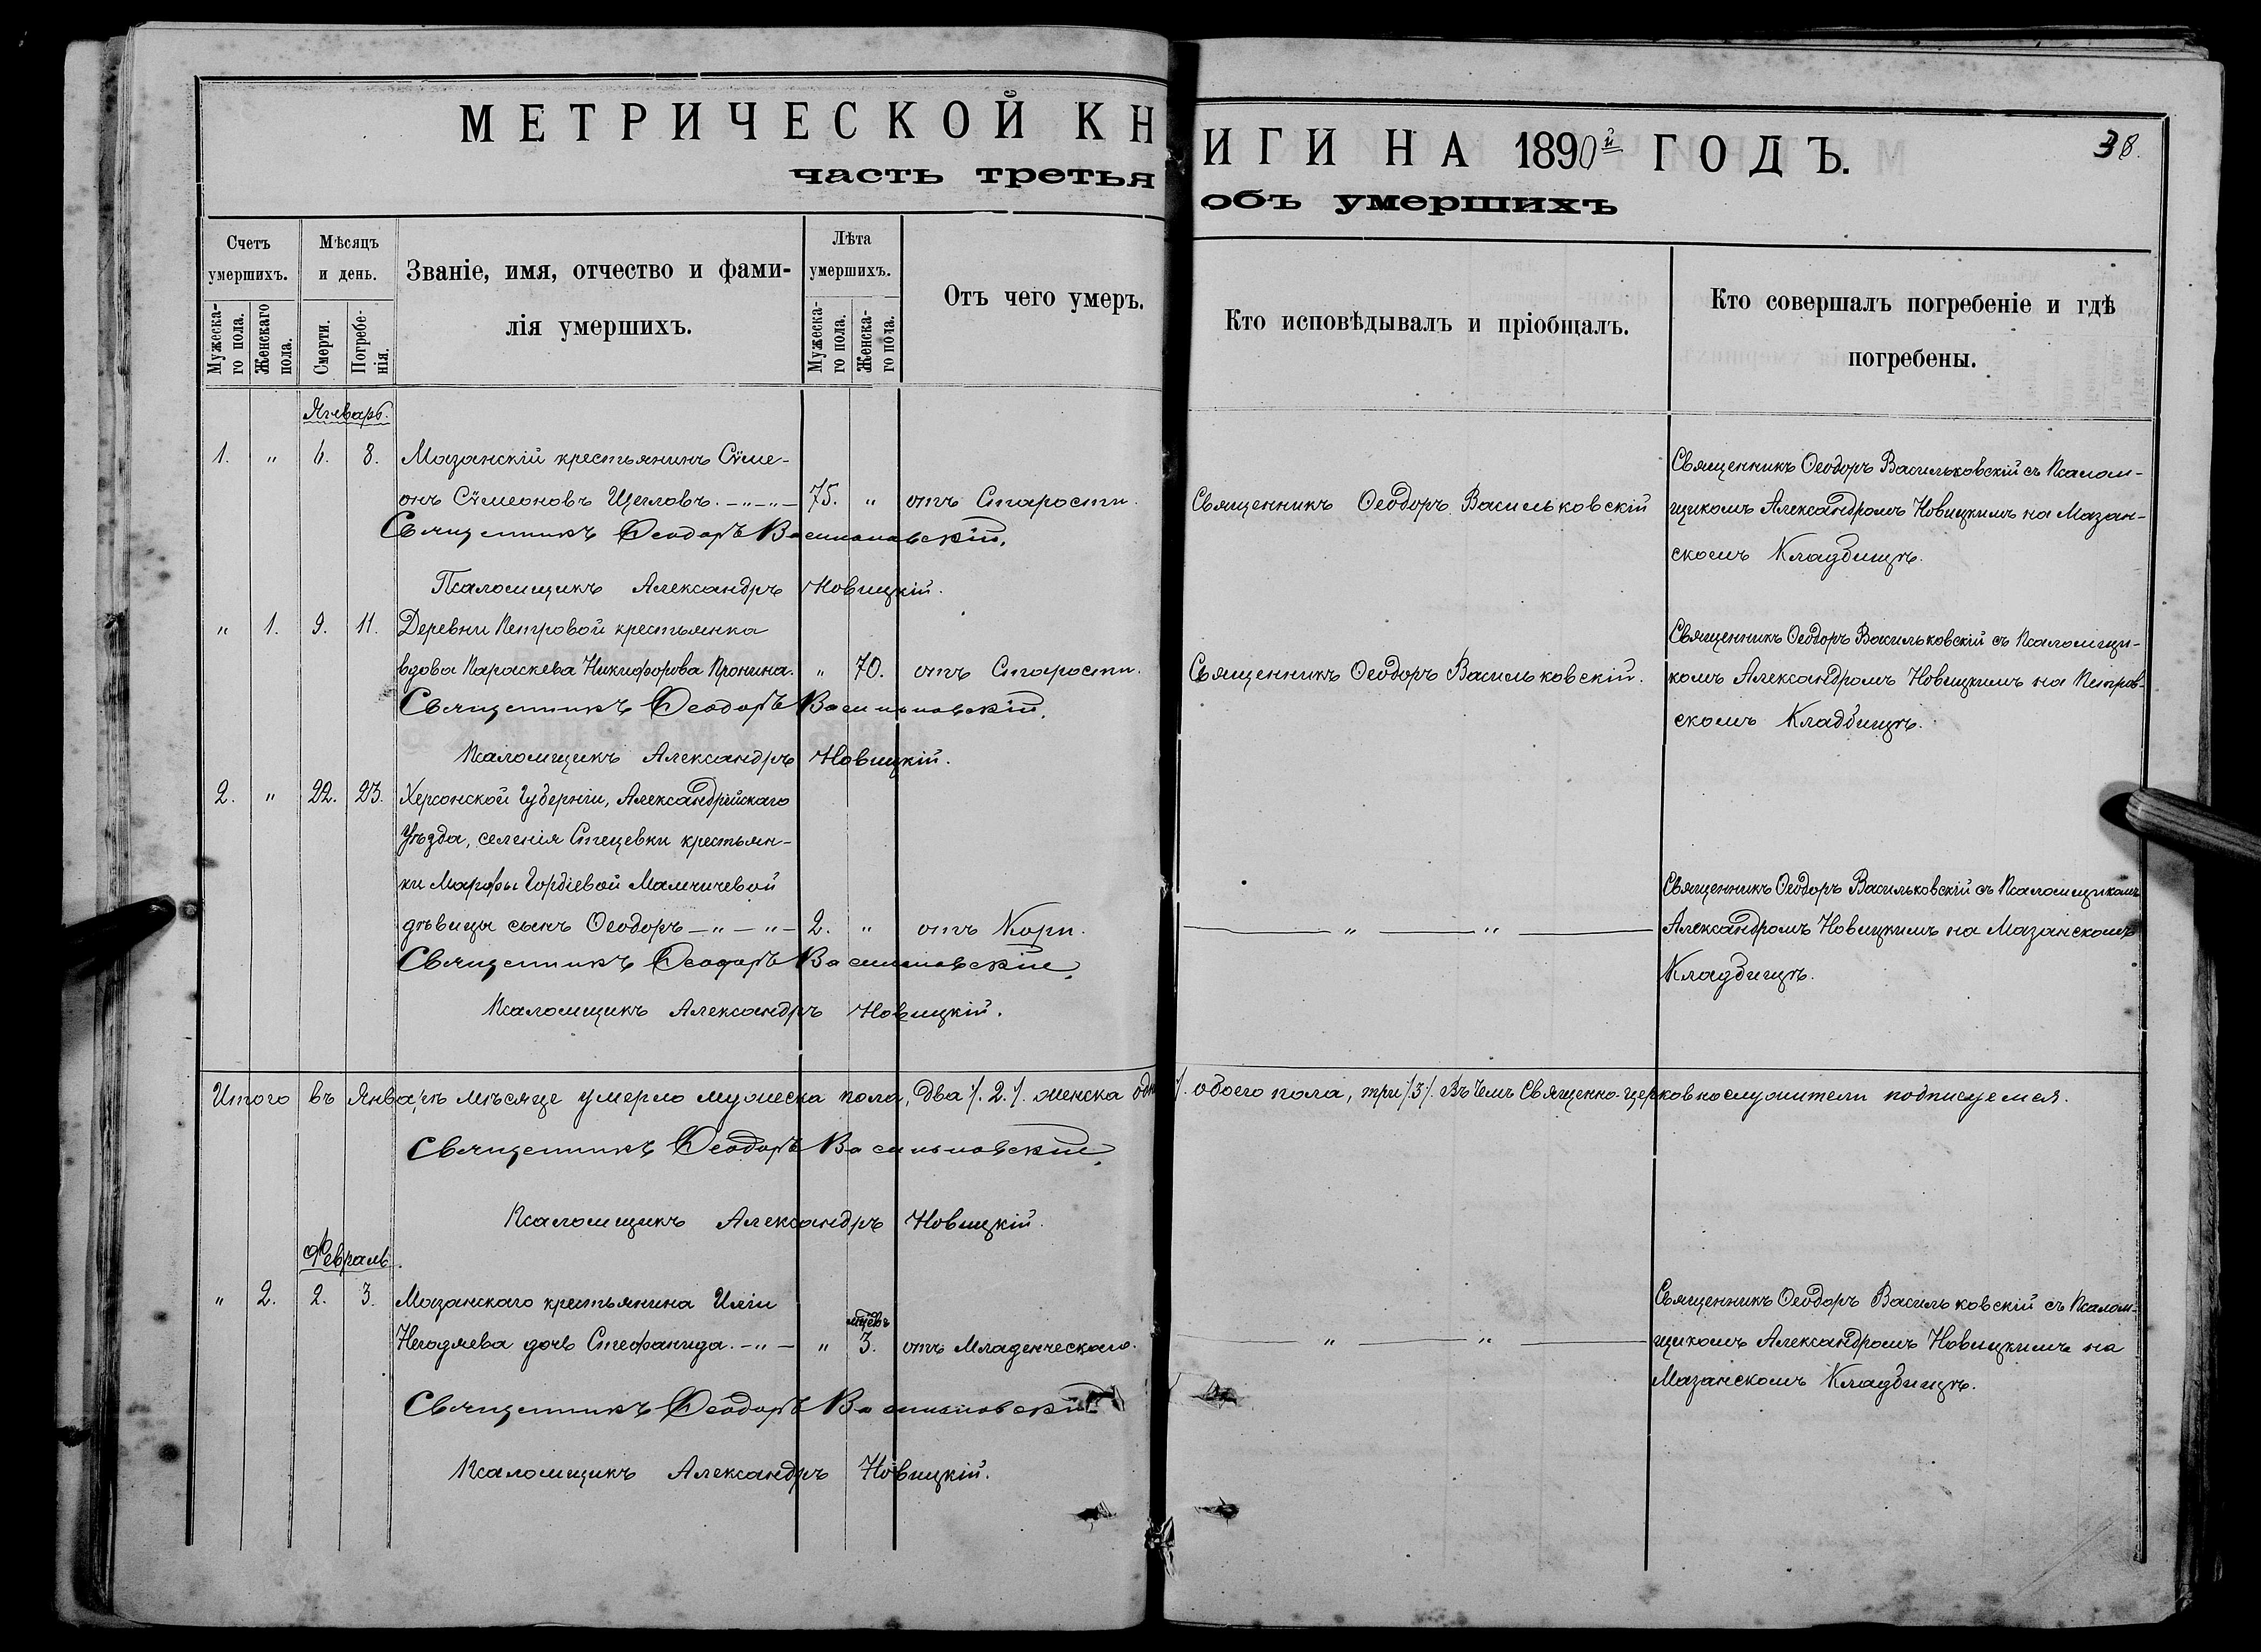 МЕТРИЧЕСКОЙ КНИГИ НА 1890й ГОДЪ.
38.
часть третья объ умершихъ
Счетъ умершихъ.
Мужеска-го пола.
Женскаго пола.
Мѣсяцъ и день.
Смерти.
Погребе-нія.
Званіе, имя, отчество и фами-
лія умершихъ.
Лѣта умершихъ.
Мужеска-го пола.
Женска-го пола.
Отъ чего умеръ.
Кто исповѣдывалъ и пріобщалъ.
Кто совершалъ погребеніе и гдѣ
погребены.
Январь.
1. " 6. 8. Мазанскій крестьянинъ Сѵме-
онъ Сѵмеоновъ Щегловъ. -"-"- 75. " отъ Старости.
Священникъ Ѳеодоръ Васильковскій
Священникъ Ѳеодоръ Васильковскій съ Псалом-
щикомъ Александромъ Новицкимъ на Мазан-
скомъ Кладбищѣ.
Священникъ Ѳеодоръ Васильковскій.
Псаломщикъ Александръ Новицкій.
" 1. 9. 11. Деревни Петровой крестьянка
вдова Параскева Никифорова Пронина. " 70. отъ Старости.
Священникъ Ѳеодоръ Васильковскій.
Священникъ Ѳеодоръ Васильковскій съ Псаломщи-
комъ Александромъ Новицкимъ на Петров-
скомъ Кладбищѣ.
Священникъ Ѳеодоръ Васильковскій.
Псаломщикъ Александръ Новицкій.
2. " 22. 23. Херсонской Губерніи, Александрійскаго
Уѣзда, селенія Стецевки крестьян-
ки Марфы Гордіевой Мамчичевой
дѣвицы сынъ Ѳеодоръ -"-"- 2. " отъ Кори.
— " — " —
Священникъ Ѳеодоръ Васильковскій съ Псаломщикомъ
Александромъ Новицкимъ на Мазанскомъ
Кладбищѣ.
Священникъ Ѳеодоръ Васильковскій.
Псаломщикъ Александръ Новицкій.
Итого въ Январѣ мѣсяце умерло мужеска пола, два /.2./. женска одн /. обоего пола, три /.3./. Въ чемъ Священно-церковнослужители подписуемся.
Священникъ Ѳеодоръ Васильковскій.
Псаломщикъ Александръ Новицкій.
Февраль.
" 2. 2. 3. Мазанскаго крестьянина Иліи
мцевъ
Негодяева дочь Стефанида. -"- " 3. отъ Младенческаго.
— " — " —
Священникъ Ѳеодоръ Васильковскій съ Псалом-
щикомъ Александромъ Новицкимъ на
Мазанскомъ Кладбищѣ.
Священникъ Ѳеодоръ Васильковскій
Псаломщикъ Александръ Новицкій.